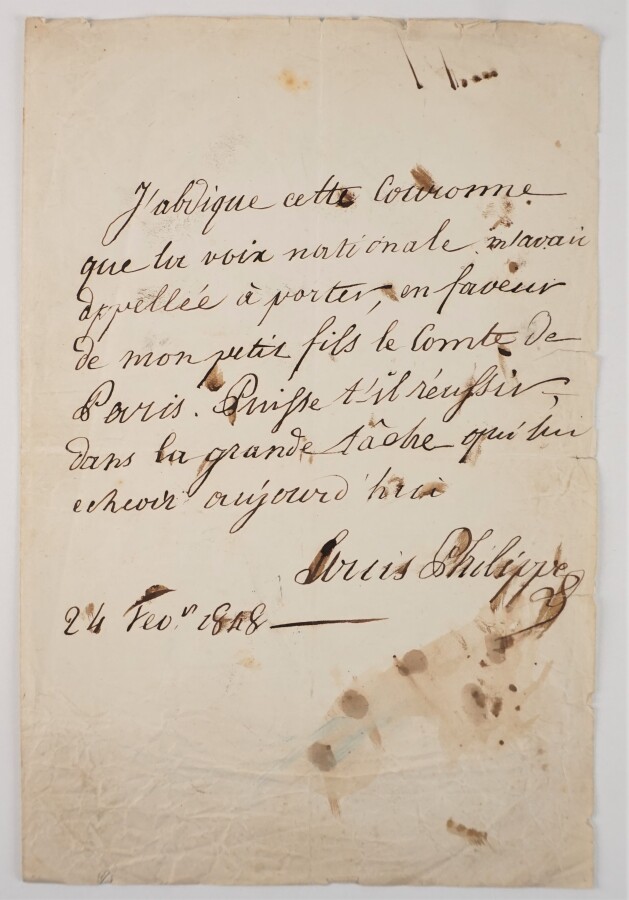 J'abdique cette Couronne
que la voix nationale m'avait
appellée à porter, en faveur
de mon petit fils le Comte de
Paris. Puisse t'il réussir,
dans la grande tâche qui lui
echoir aujourd'hui
Louis Philippe
24 Fev.r 1848